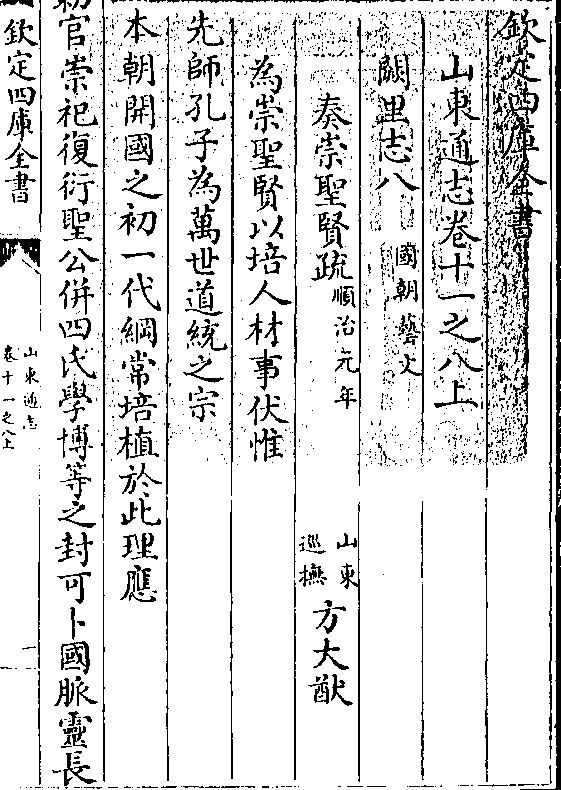 欽定四庫全書
山東通志卷十一之八上
闕里志八 國朝藝文
奏崇聖賢疏 順治元年 山東巡撫 方大猷
為崇聖賢以培人材事伏惟
先師孔子為萬世道統之宗
本朝開國之初一代綱常培植於此理應
官崇祀復衍聖公併四氏學博等之封可卜國脈靈長
欽定四庫全書
山東通志
卷十一之八上
一